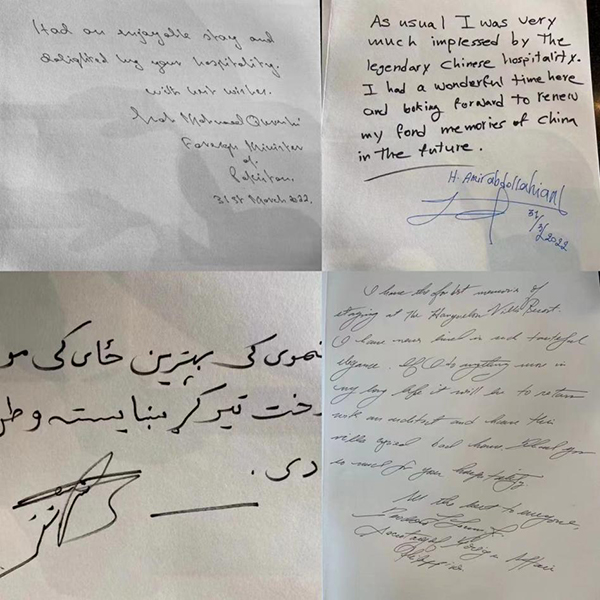 Had an enjoyable stay and
delighted by your hospitality.
with best wishes.
Shah Mahmood Qureshi
Foreign Minister
of
Pakistan.
31st March 2022.
As usual I was very
much impressed by the
legendary Chinese hospitality.
I had a wonderful time here
and looking forward to renew
my fond memories of China
in the future.
H. Amirabdollahian
31/3/2022
کی بهترین ځای کی مو
وخت تیر کړ ښایسته وطن
دی.
I have the fondest memories of
staying at the
I have never lived in such tasteful
elegance. If I do anything more in
my long life it will be to return
with an architect and have this
villa copied back home. Thank you
so much for your hospitality.
All the best to everyone,
Secretary of Foreign Affairs
Philippines